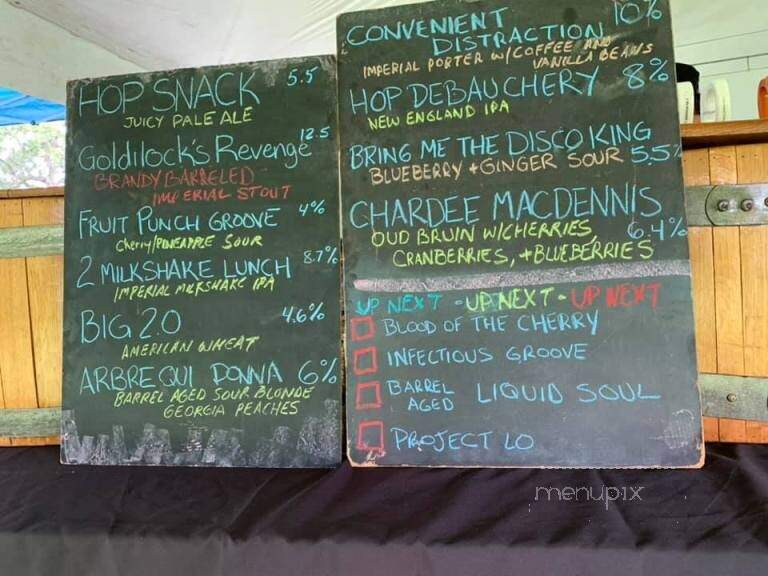 HOP SNACK 5.5
JUICY PALE ALE
Goldilock's Revenge 12.5
BRANDY BARRELED
IMPERIAL STOUT
FRUIT PUNCH GROOVE 4%
Cherry/PINEAPPLE SOUR
2 MILKSHAKE LUNCH 8.7%
IMPERIAL MILKSHAKE IPA
BIG 2.0 4.6%
AMERICAN WHEAT
ARBRE QUI DONNA 6%
BARREL AGED SOUR BLONDE
GEORGIA PEACHES
CONVENIENT 10%
DISTRACTION
IMPERIAL PORTER W/COFFEE AND
VANILLA BEANS
HOP DEBAUCHERY 8%
NEW ENGLAND IPA
BRING ME THE DISCO KING
BLUEBERRY + GINGER SOUR 5.5%
CHARDEE MACDENNIS
OUD BRUIN W/CHERRIES, 6.4%
CRANBERRIES, + BLUEBERRIES
UP NEXT - UP NEXT - UP NEXT
BLOOD OF THE CHERRY
INFECTIOUS GROOVE
BARREL
AGED LIQUID SOUL
PROJECT LO
menupix